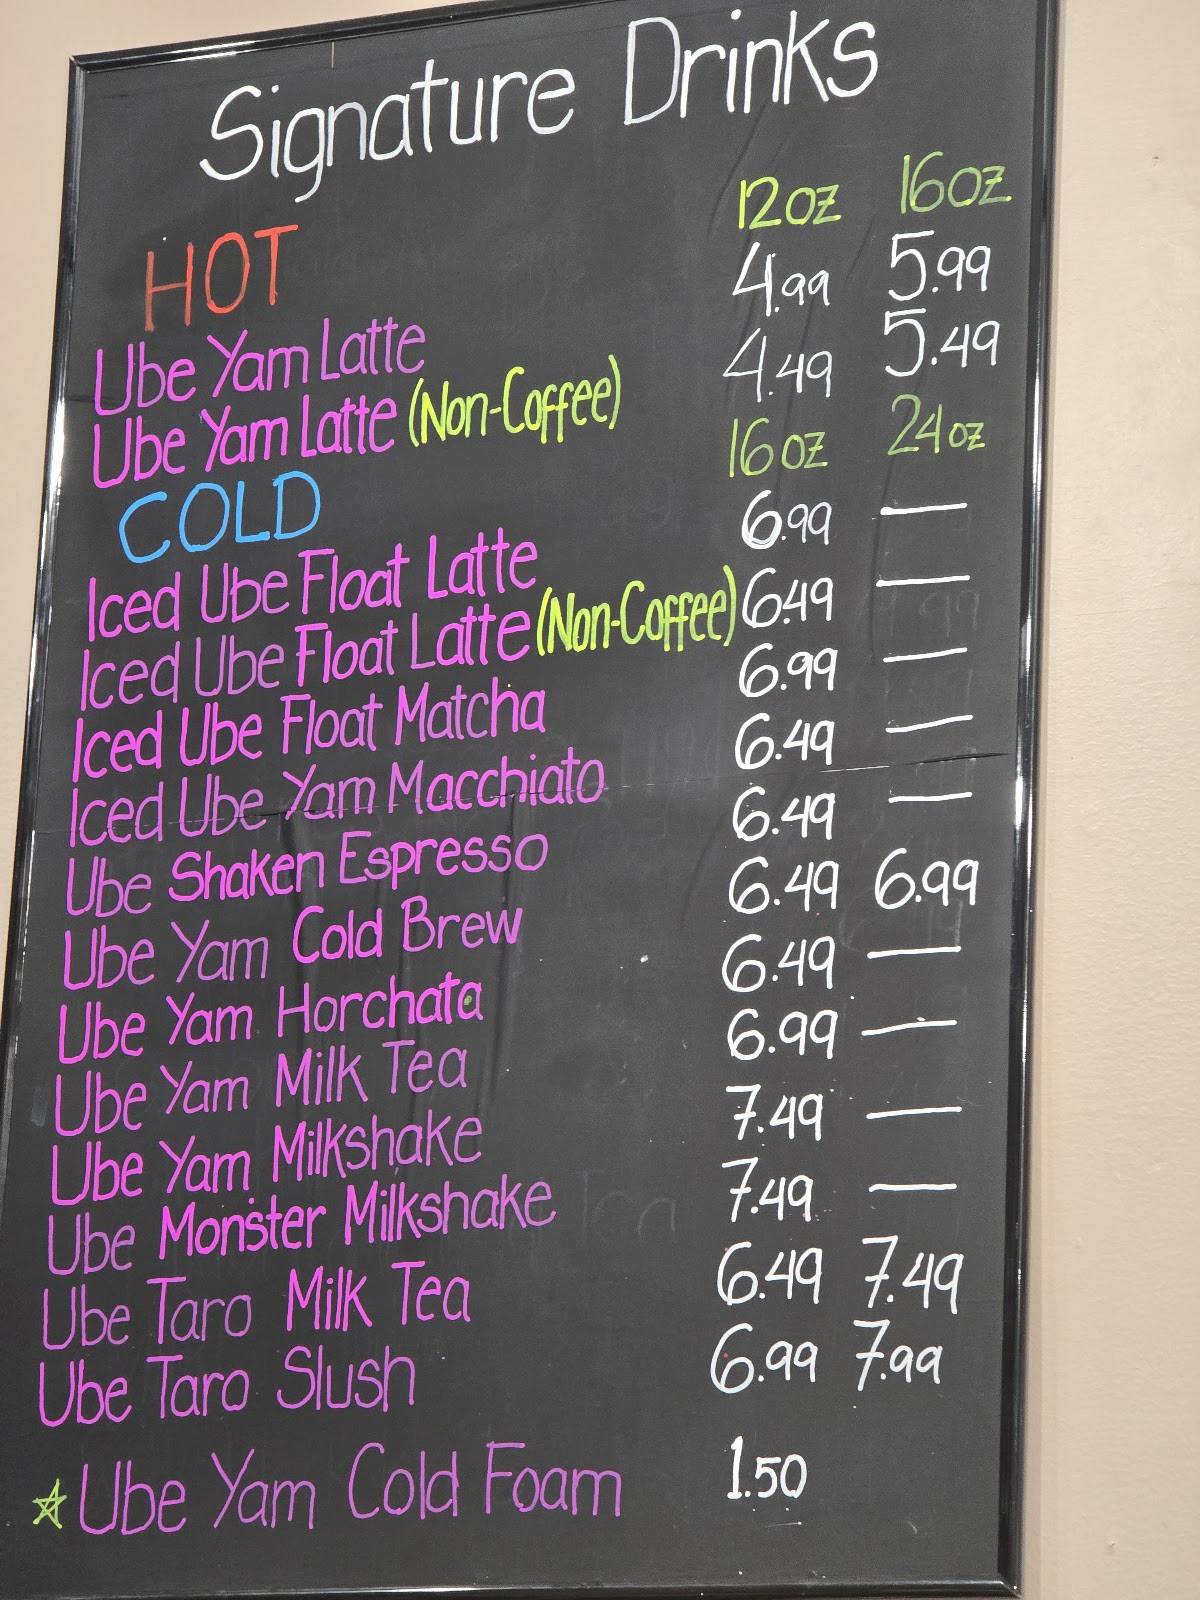 Signature Drinks
HOT 12oz 16oz
Ube Yam Latte 4.99 5.99
Ube Yam Latte (Non-Coffee) 4.49 5.49
COLD 16oz 24oz
Iced Ube Float Latte 6.99 —
Iced Ube Float Latte (Non-Coffee) 6.49 —
Iced Ube Float Matcha 6.99 —
Iced Ube Yam Macchiato 6.49 —
Ube Shaken Espresso 6.49 —
Ube Yam Cold Brew 6.49 6.99
Ube Yam Horchata 6.49 —
Ube Yam Milk Tea 6.99 —
Ube Yam Milkshake 7.49 —
Ube Monster Milkshake 7.49 —
Ube Taro Milk Tea 6.49 7.49
Ube Taro Slush 6.99 7.99
☆ Ube Yam Cold Foam 1.50